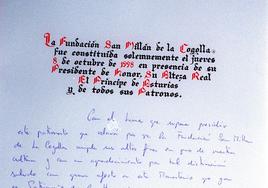 La Fundación San Millán de la Cogolla
fue constituida solemnemente el jueves
8 de octubre de 1998 en presencia de su
Presidente de Honor, Su Alteza Real
El Príncipe de Asturias
y de todos sus Patronos.
Con el honor que supone presidir
este patronato que
de la Cogolla cumpla sus altos fines en pro de nuestra
cultura y con mi agradecimiento por tal distinción
saludo con gran afecto a este Monasterio que